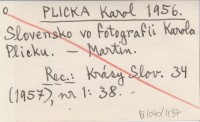 PLICKA Karol 1956.
Slovensko vo fotografii Karola
Plicku. — Martin.
Rec.: Krásy Slov. 34
(1957), nr 1: 38. —